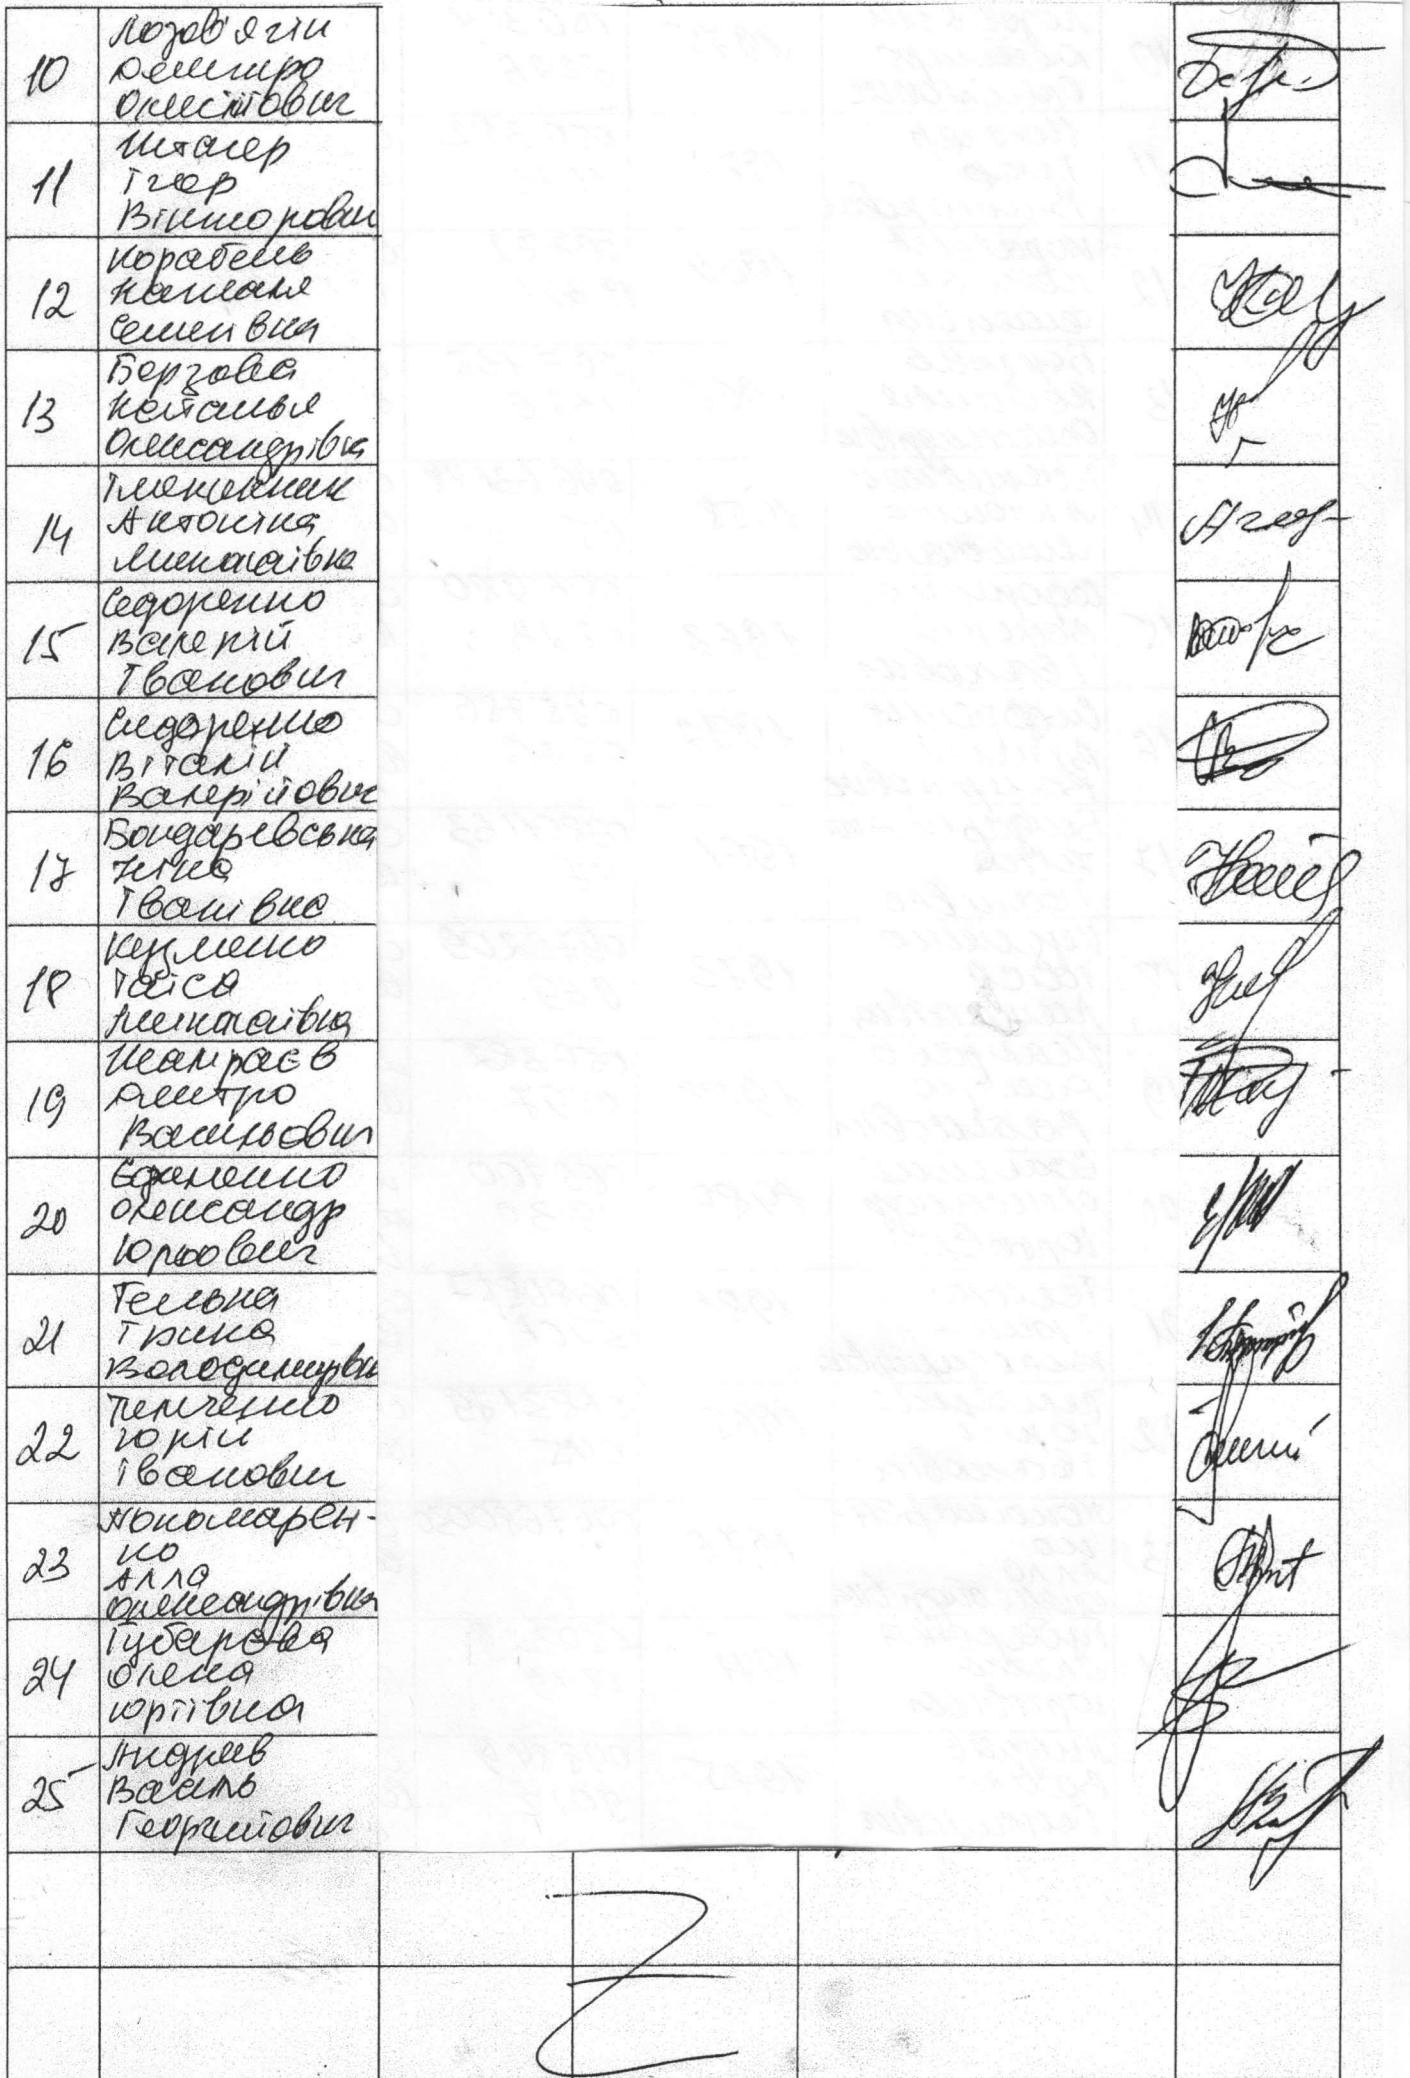 10
Лозов'ягін
Дмитро
Олегович
11
Штагер
Ігор
Вікторович
12
Корабель
Наталя
Семенівна
13
Борзова
Наталья
Олександрівна
14
Антоніна
Миколаївна
15
Седоренко
Валерій
Іванович
16
Сидоренко
Віталій
Валерійович
17
Бондаревська
Ніна
Іванівна
18
Кузменко
Таїса
Миколаївна
19
Шамраєв
Дмитро
Васильович
20
Олександр
Юрьович
21
Ірина
Володимирівна
22
Юрій
Іванович
23
Пономарен-
ко
Алла
Олександрівна
24
Губарєва
Олена
Юріївна
25
Андрєєв
Василь
Георгійович